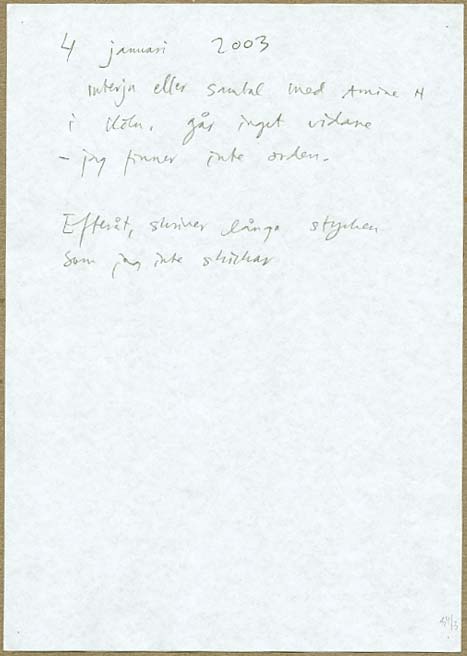 4 januari 2003
interju eller samtal med Amine H
i Köln. går inget vidare
– jag finner inte orden.
Efteråt, skriver långa stycken
Som jag inte skickar